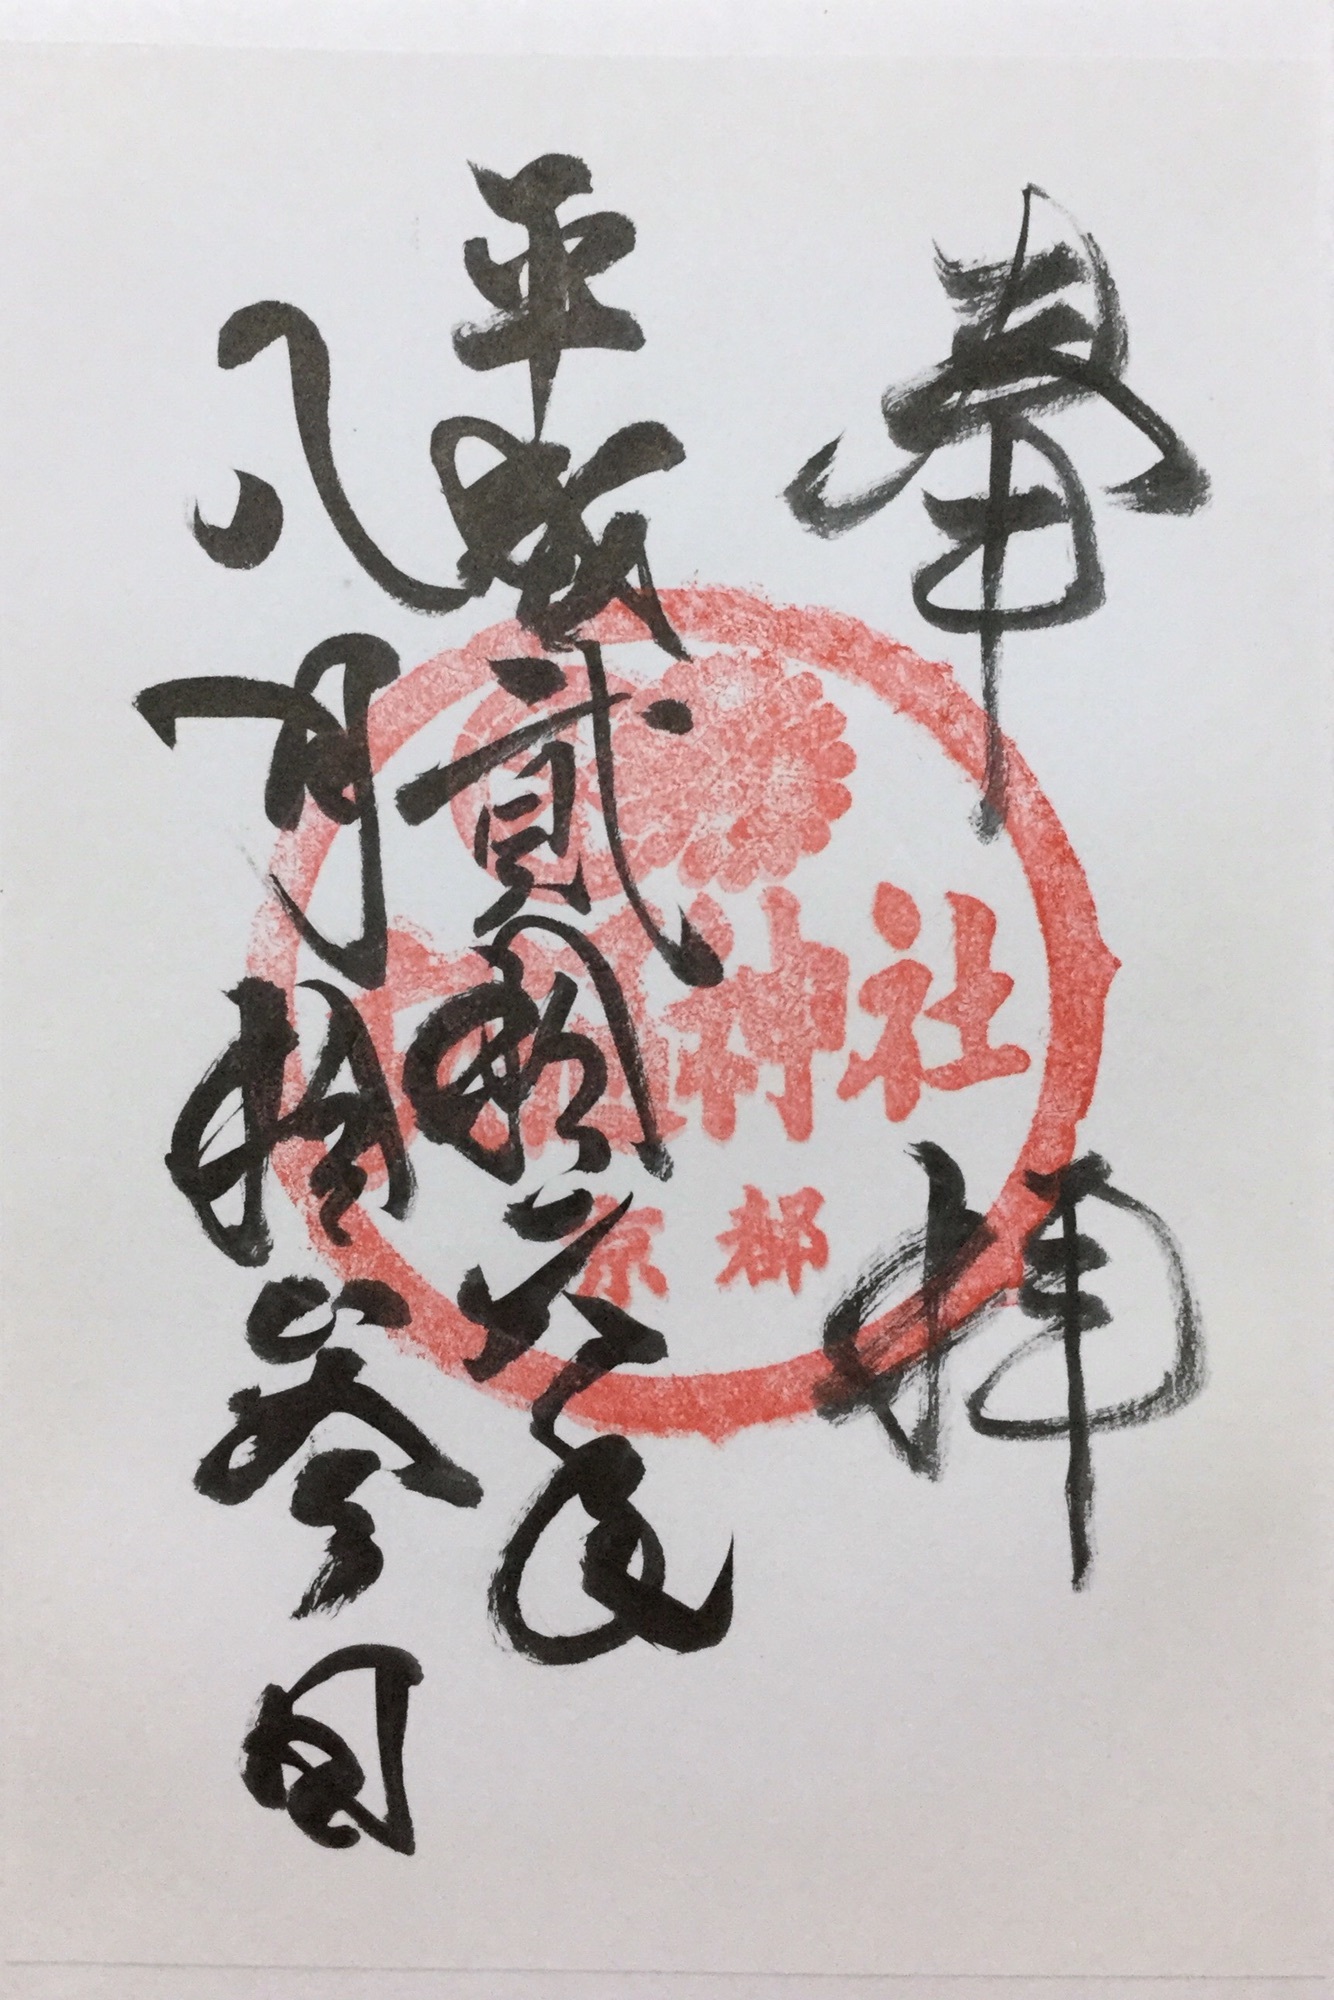 奉拝
平成貳拾六年
八月拾参日
神社
京都